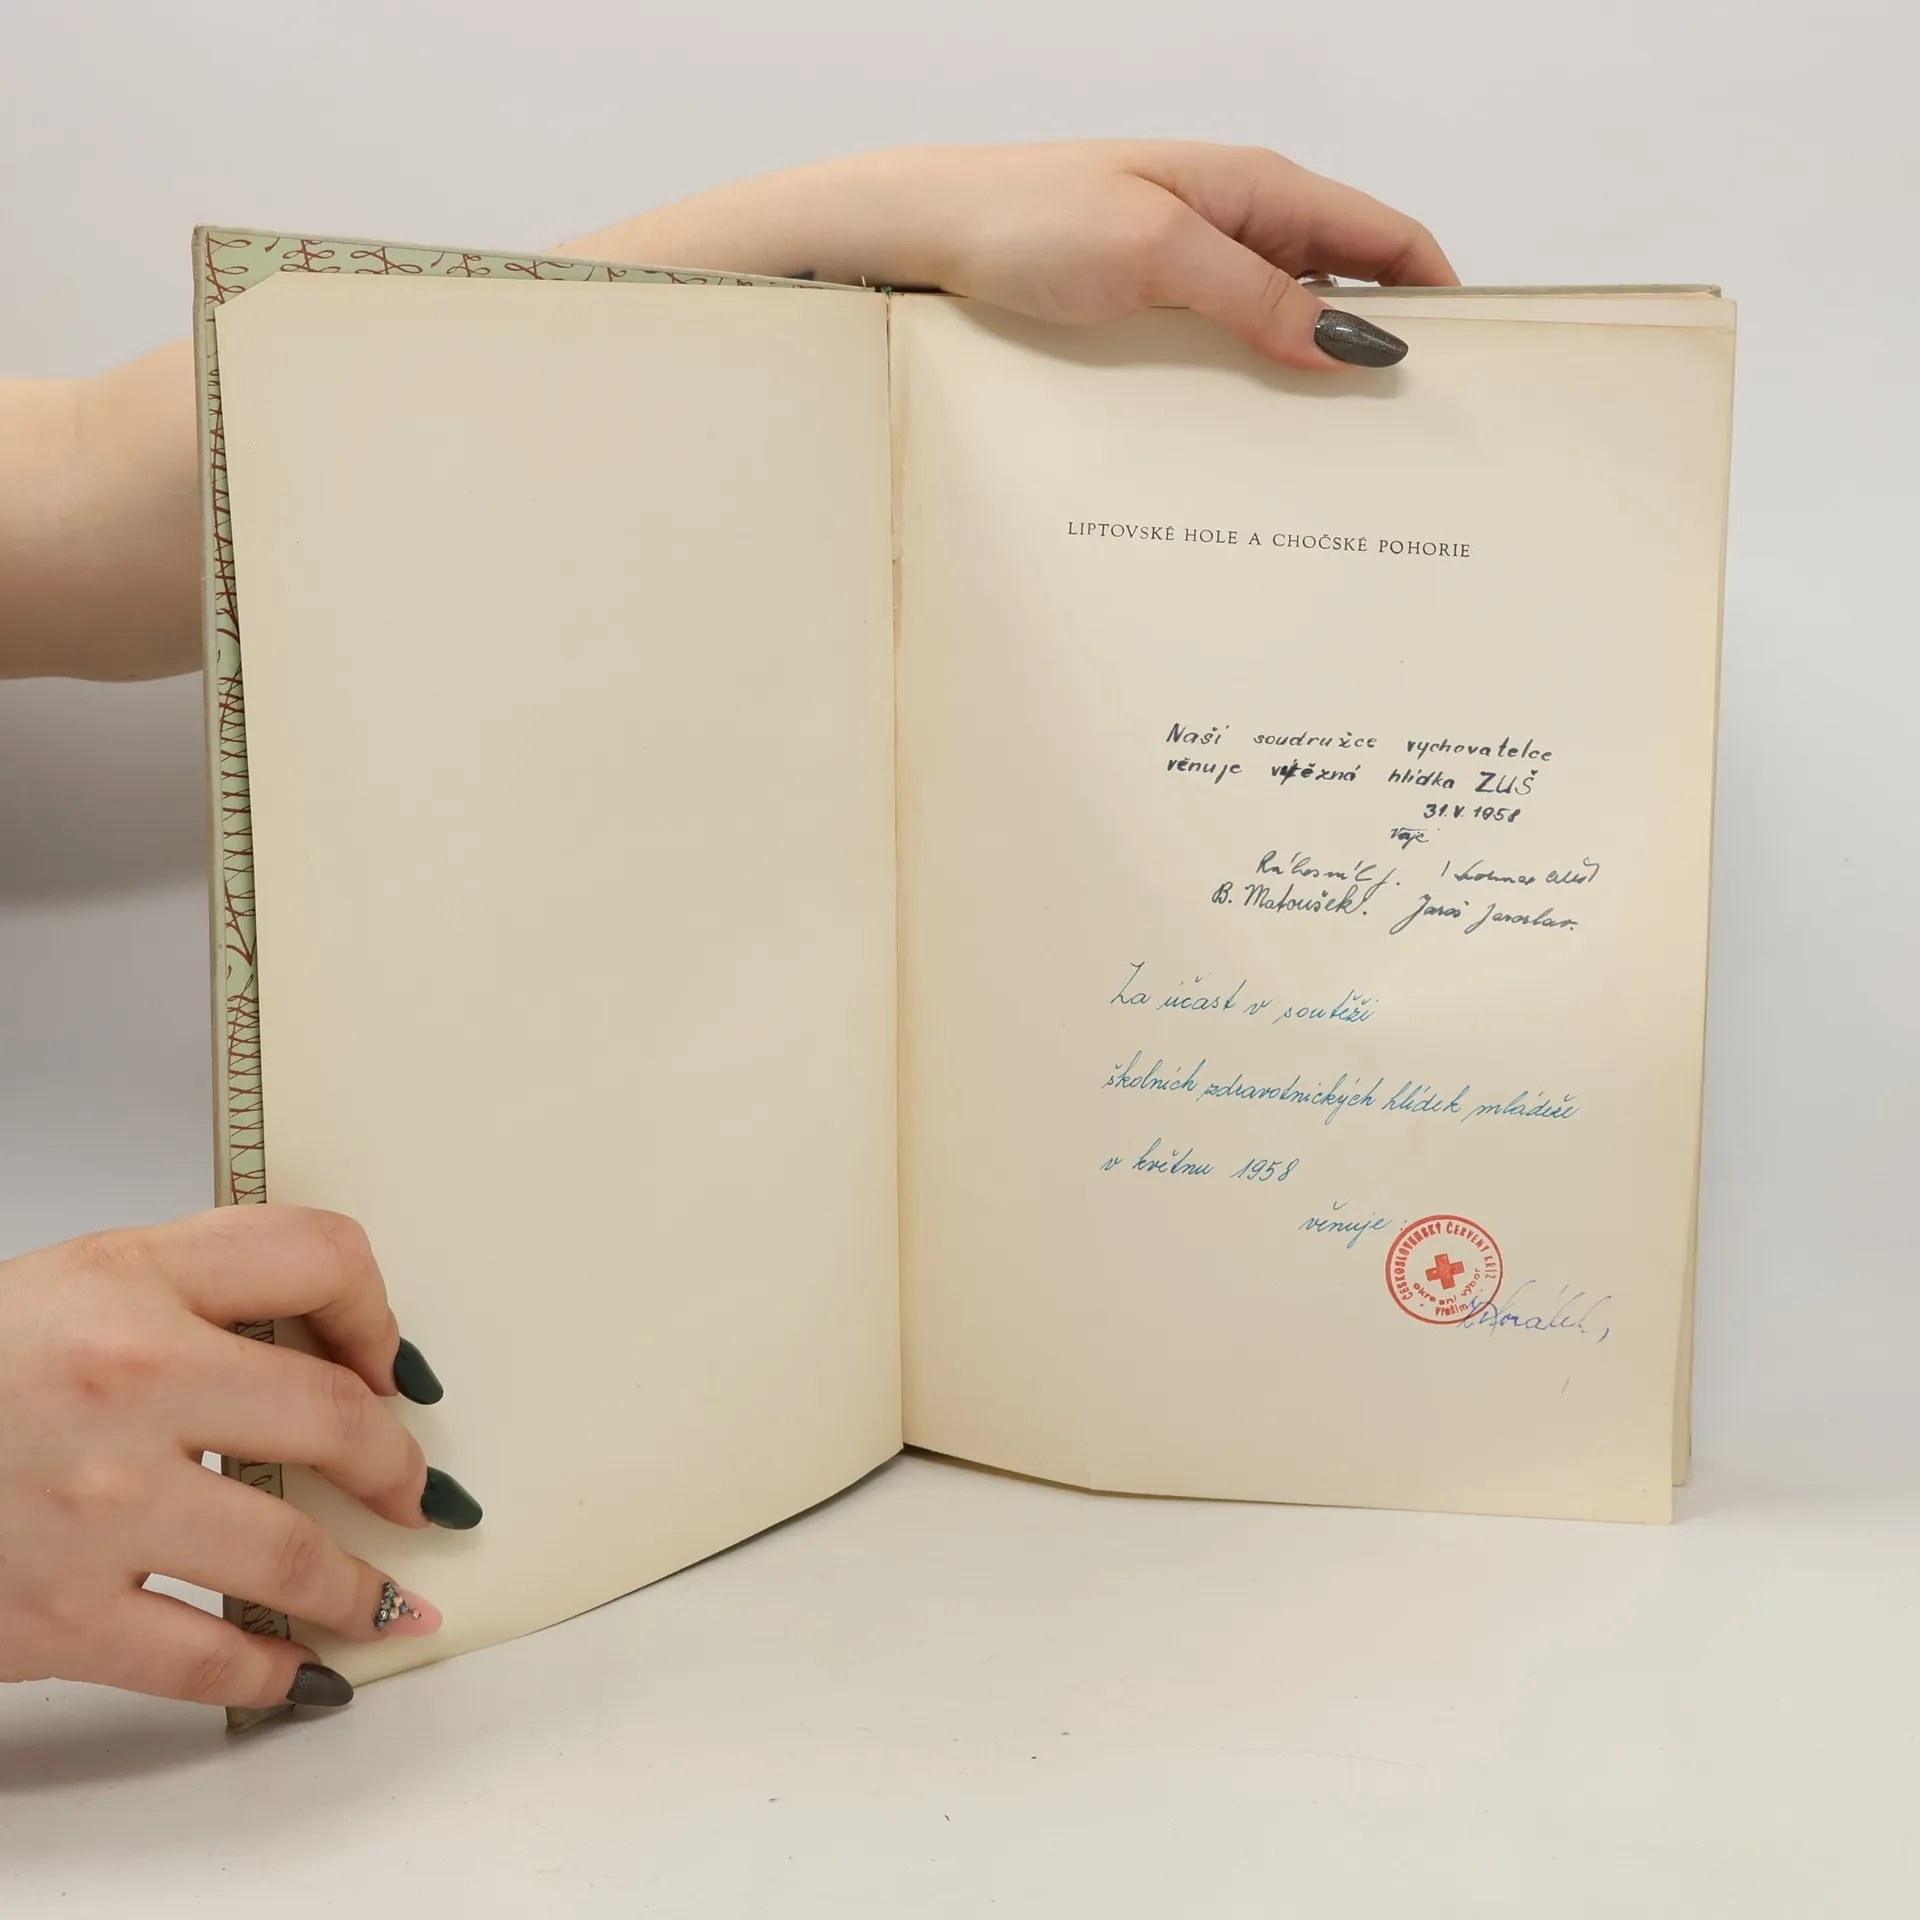 LIPTOVSKÉ HOLE A CHOČSKÉ POHORIE
Naší soudružce vychovatelce
věnuje vítězná hlídka ZUŠ
31.V.1958
B. Matoušek. Jaroš Jaroslav.
Za účast v soutěži
školních zdravotnických hlídek mládeže
v květnu 1958
věnuje:
ČESKOSLOVENSKÝ ČERVENÝ KŘÍŽ
okresní výbor
Vlašim